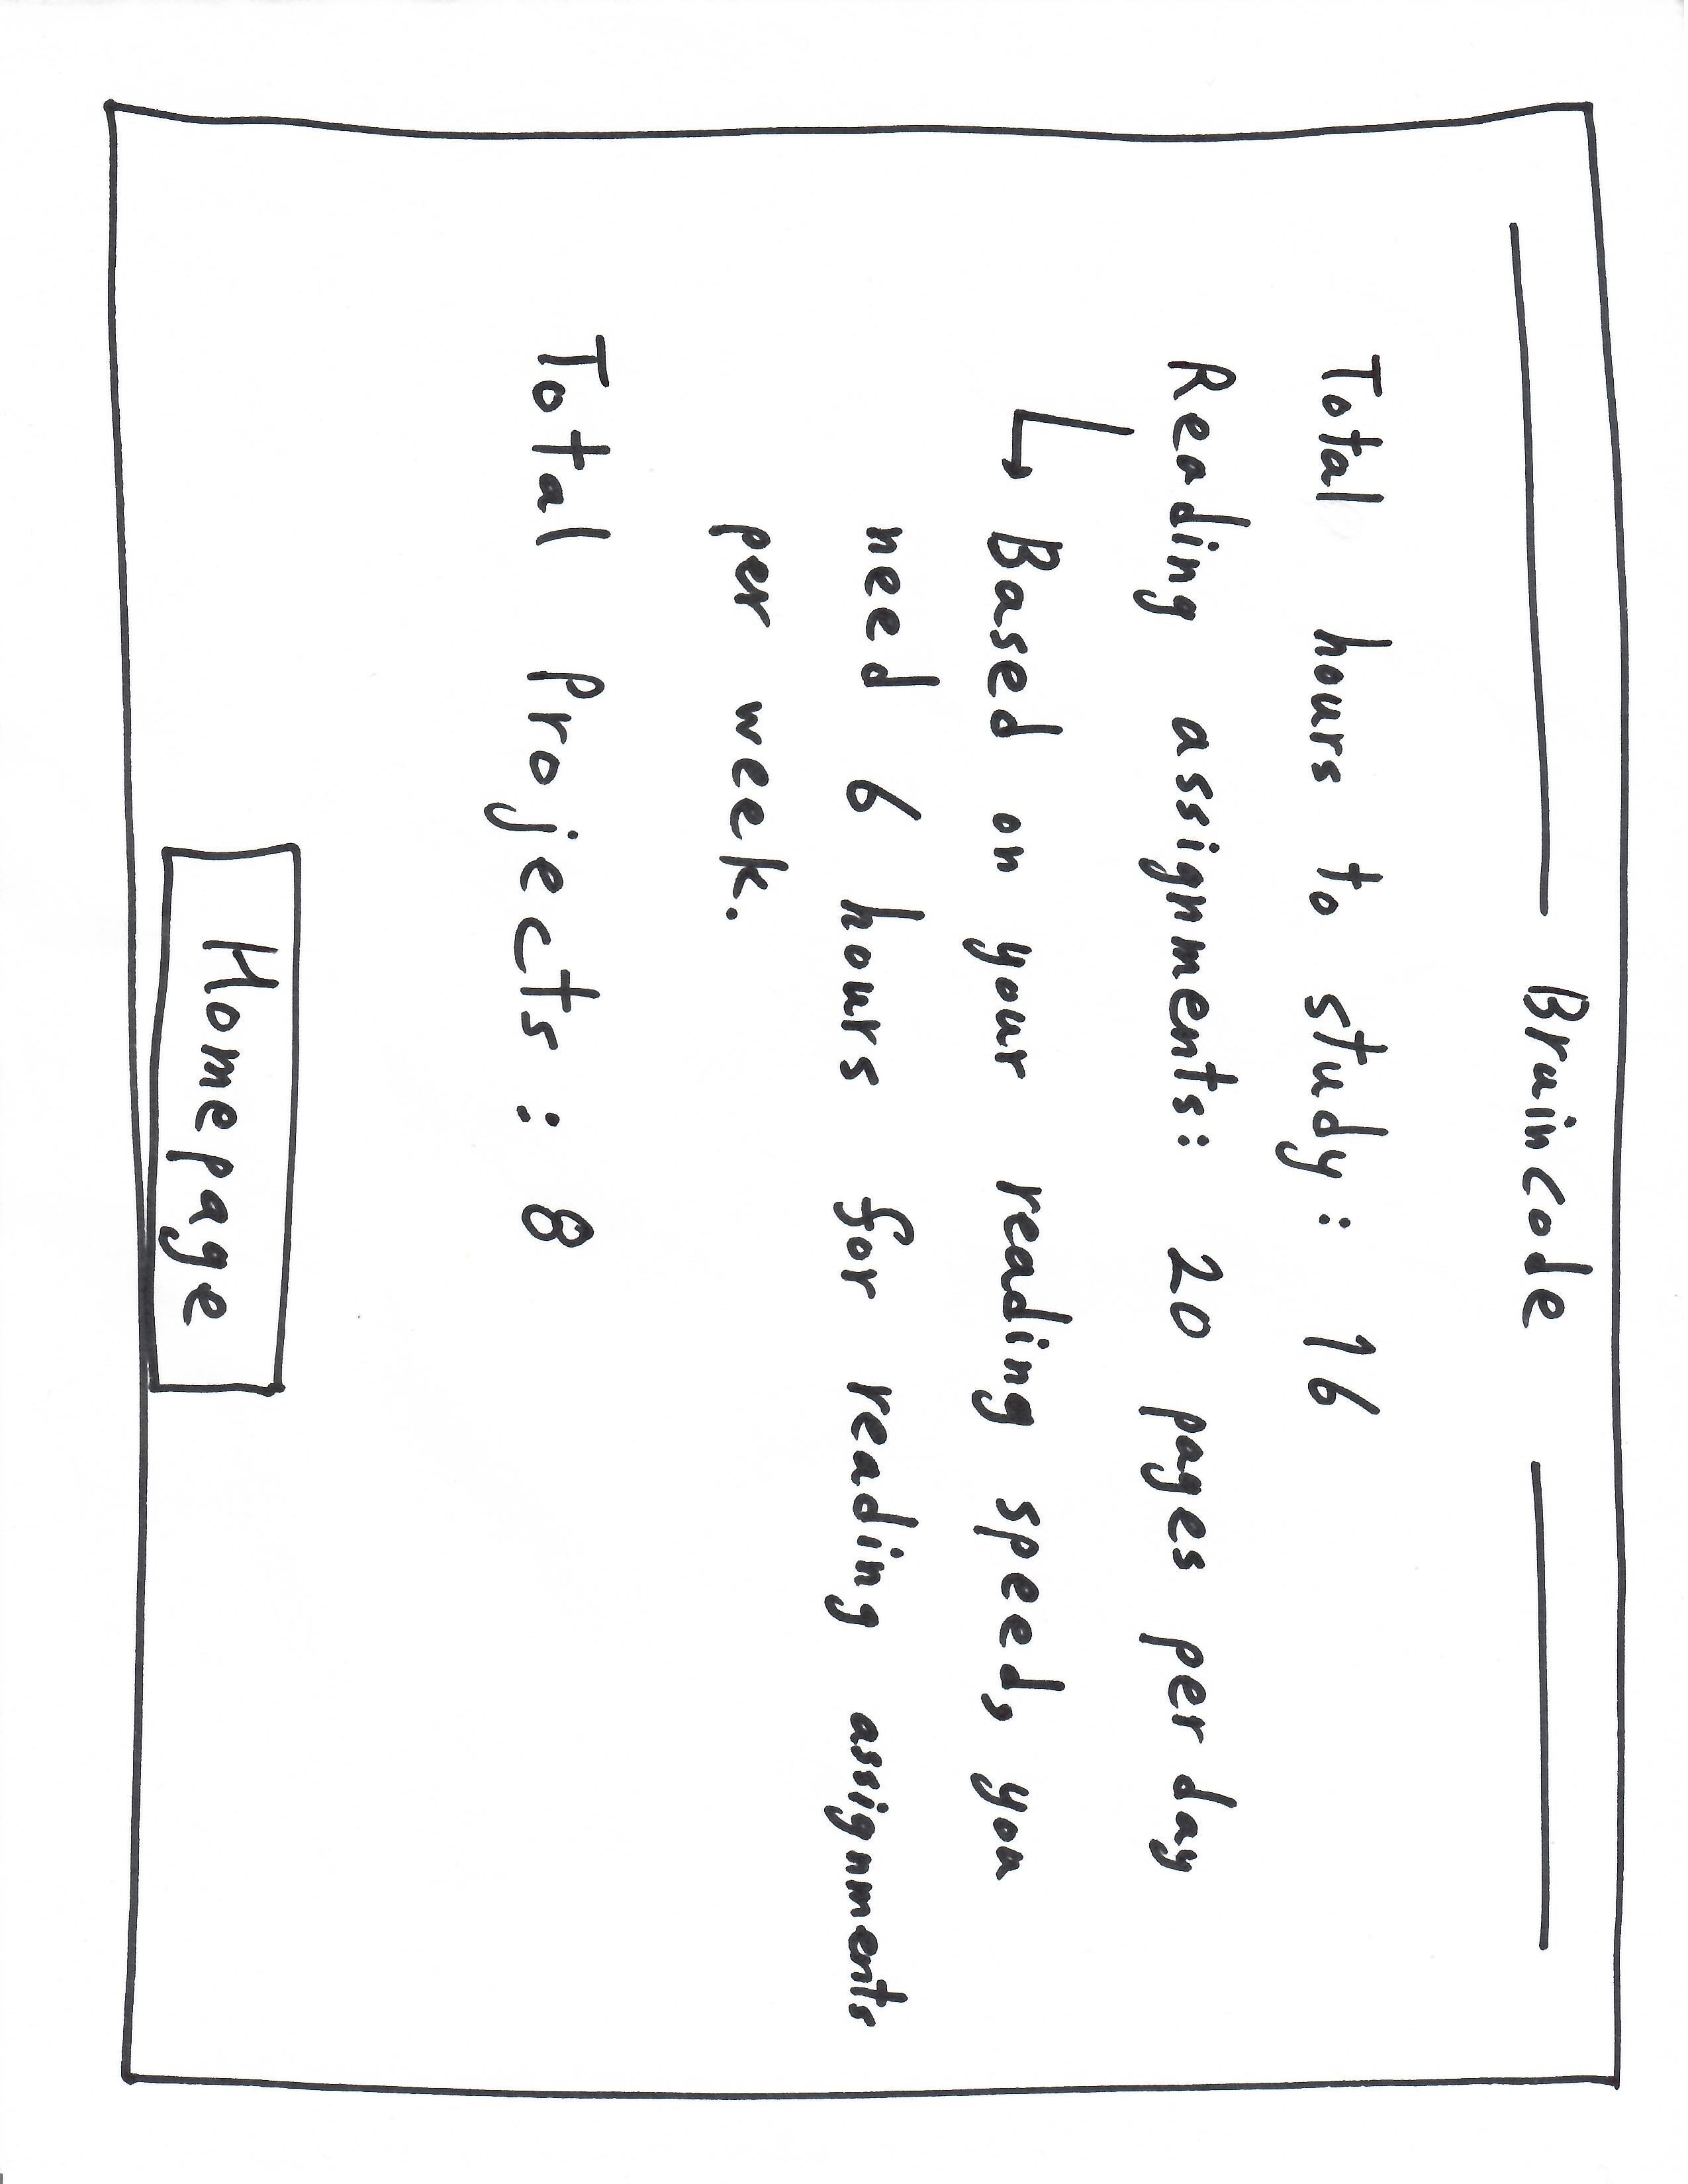 Braincode
Total hours to study: 16
Reading assignments: 20 pages per day
Based on your reading speed, you
need 6 hours for reading assignments
per week.
Total Projects: 8
Homepage